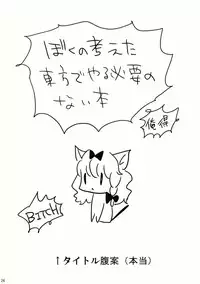 ぼくの考えた
東方でやる必要の
ない本
俺得
BITCH
↑タイトル腹案(本当)